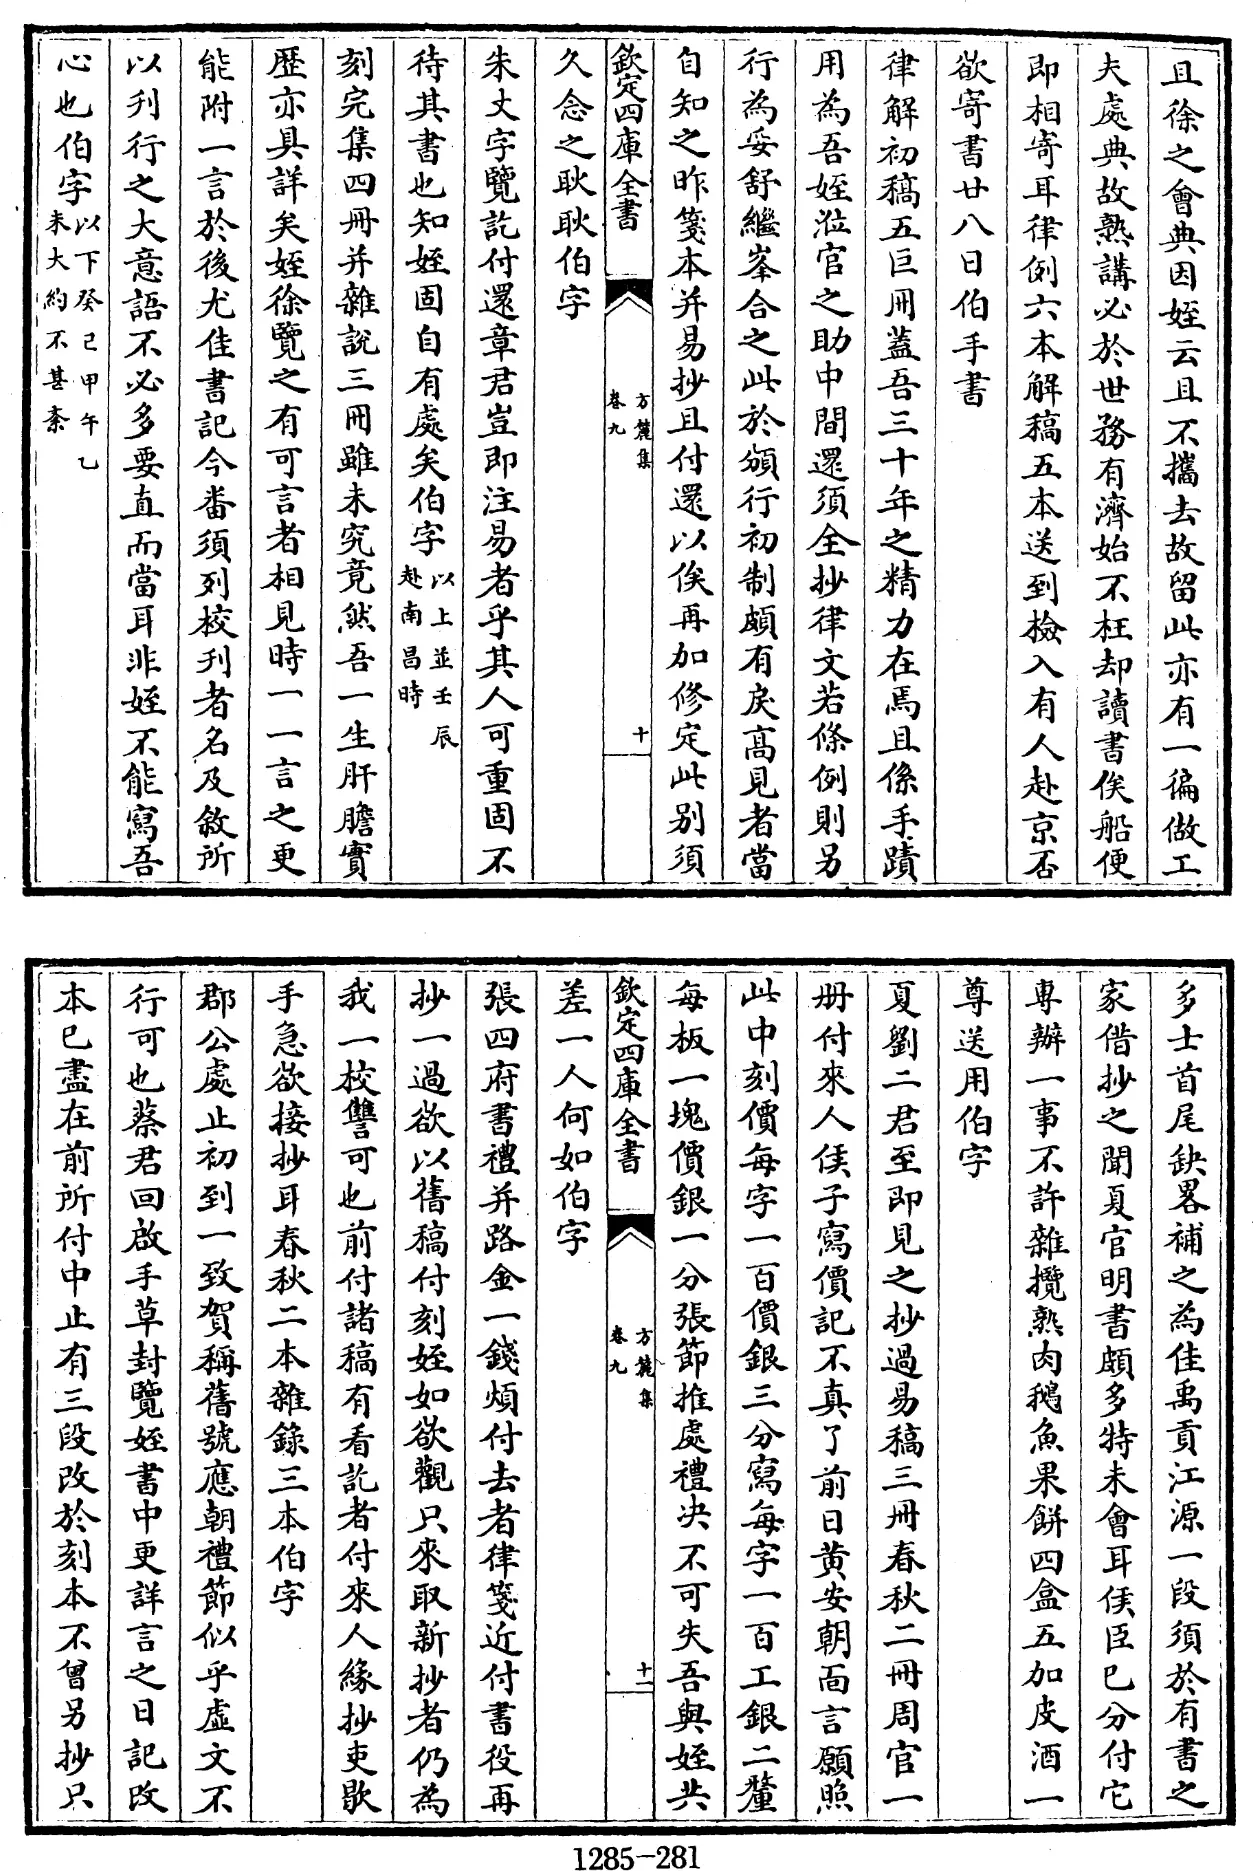 且徐之會典因姪云且不攜去故留此亦有一徧做工
夫處典故熟講必於世務有濟始不枉却讀書俟船便
即相寄耳律例六本解稿五本送到檢入有人赴京否
欲寄書廿八日伯手書
律解初稿五巨冊蓋吾三十年之精力在焉且係手蹟
用為吾姪涖官之助中間還須全抄律文若條例則另
行為妥舒繼峯合之此於頒行初制頗有戾高見者當
自知之昨箋本并易抄且付還以俟再加修定此别須
欽定四庫全書
方麓集
卷九
十
久念之耿耿伯字
朱丈字覽訖付還章君豈即注易者乎其人可重固不
待其書也知姪固自有處矣伯字以上並壬辰
赴南昌時
刻完集四冊并雜說三冊雖未究竟然吾一生肝膽實
歷亦具詳矣姪徐覽之有可言者相見時一一言之更
能附一言於後尤佳書記今番須列校刋者名及敘所
以刋行之大意語不必多要直而當耳非姪不能寫吾
心也伯字以下癸已甲午乙
未大約不甚紊
多士首尾缺畧補之為佳禹貢江源一段須於有書之
家借抄之聞夏官明書頗多特未會耳侯臣已分付它
專辦一事不許雜攬熟肉鵝魚果餅四盒五加皮酒一
尊送用伯字
夏劉二君至即見之抄過易稿三冊春秋二冊周官一
册付來人侯子寫價記不真了前日黄安朝面言願照
此中刻價每字一百價銀三分寫每字一百工銀二釐
每板一塊價銀一分張節推處禮決不可失吾與姪共
欽定四庫全書
方麓集
卷九
十一
差一人何如伯字
張四府書禮并路金一錢煩付去者律箋近付書役再
抄一過欲以舊稿付刻姪如欲觀只來取新抄者仍為
我一校讐可也前付諸稿有看訖者付來人緣抄吏歇
手急欲接抄耳春秋二本雜錄三本伯字
郡公處止初到一致賀稱舊號應朝禮節似乎虛文不
行可也蔡君回啟手草封覽姪書中更詳言之日記改
本已盡在前所付中止有三段改於刻本不曾另抄只
1285-281